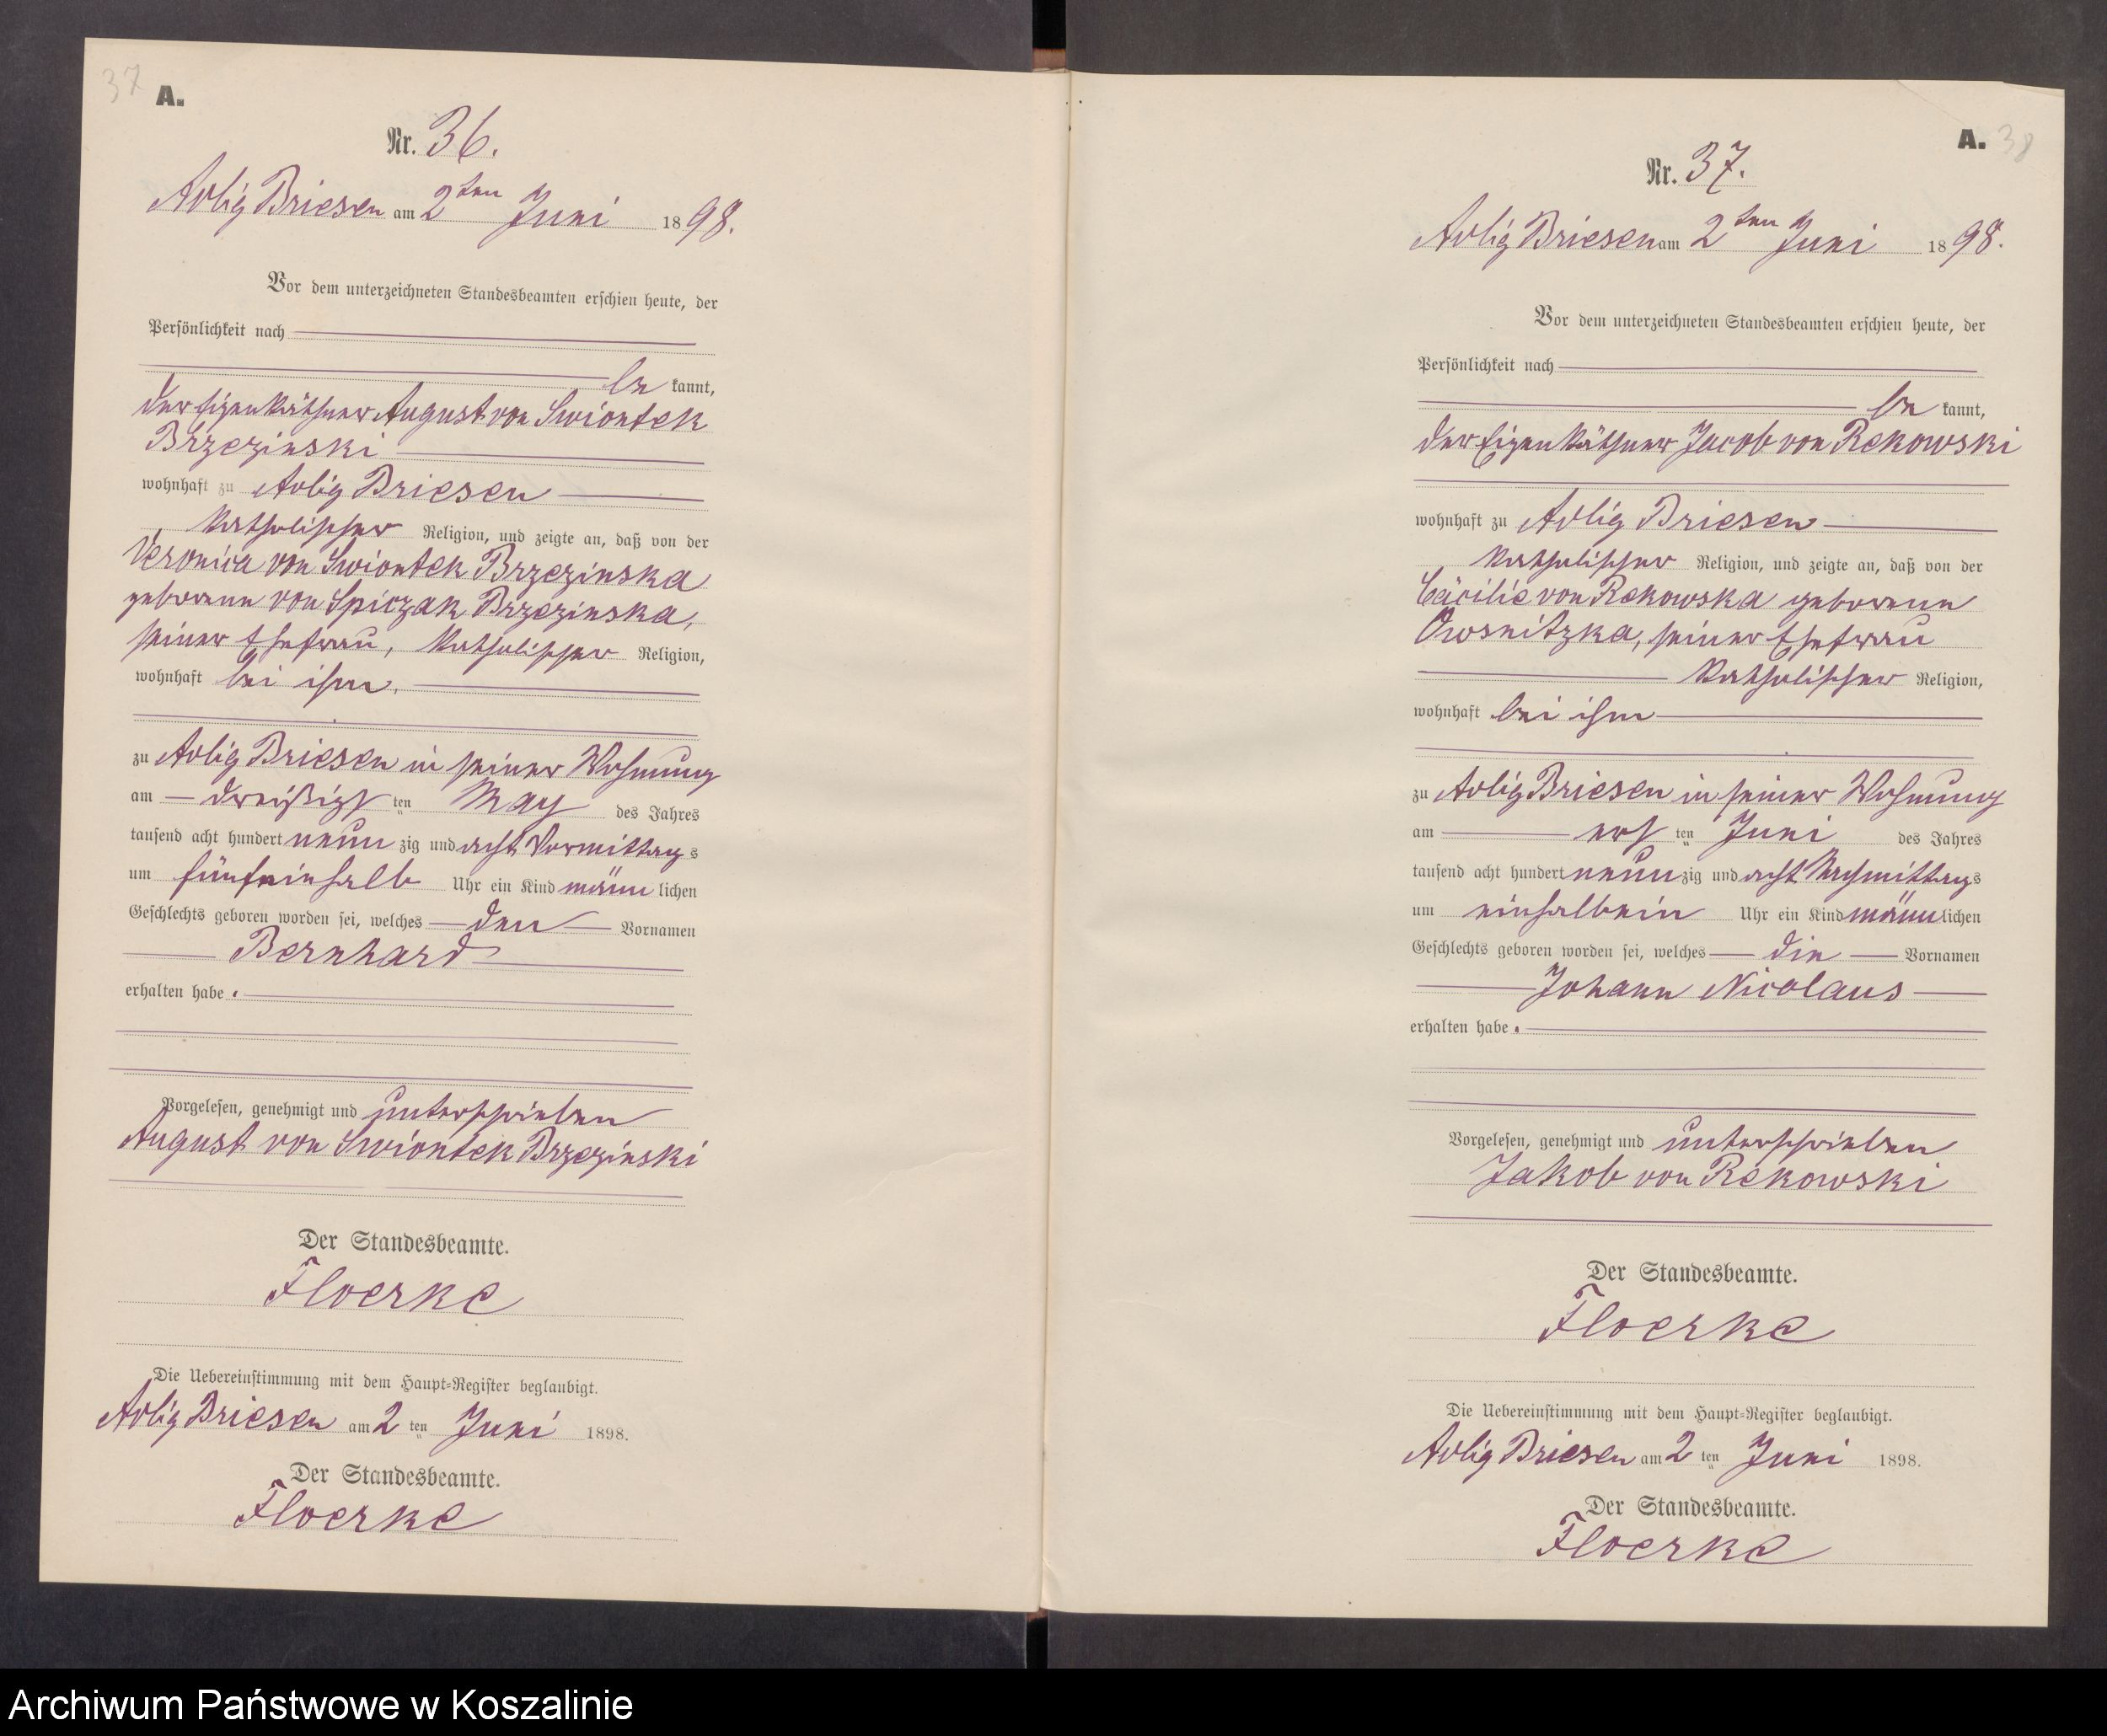 37
A.
Nr. 36.
Adlig Briesen am 2ten Juni 1898.
Vor dem unterzeichneten Standesbeamten erschien heute, der
Persönlichkeit nach
be kannt,
der Eigenkäthner August von Swiontek
Brzezinski
wohnhaft zu Adlig Briesen
katholischer Religion, und zeigte an, daß von der
Veronica von Swiontek Brzezinska
geborenen von Spiczak Brzezinska,
seiner Ehefrau, katholischer Religion,
wohnhaft bei ihm,
zu Adlig Briesen in seiner Wohnung
am dreißigst ten May des Jahres
tausend acht hundert neun zig und acht Vormittags
um fünfeinhalb Uhr ein Kind männ lichen
Geschlechts geboren worden sei, welches den Vornamen
Bernhard
erhalten habe.
Vorgelesen, genehmigt und unterschrieben
August von Swiontek Brzezinski
Der Standesbeamte.
Floerke
Die Uebereinstimmung mit dem Haupt=Register beglaubigt.
Adlig Briesen am 2 ten Juni 1898.
Der Standesbeamte.
Floerke
A. 38
Nr. 37.
Adlig Briesen am 2ten Juni 1898.
Vor dem unterzeichneten Standesbeamten erschien heute, der
Persönlichkeit nach
be kannt,
der Eigenkäthner Jacob von Rekowski
wohnhaft zu Adlig Briesen
katholischer Religion, und zeigte an, daß von der
Cäcilie von Rekowska geborenen
Owsnitzka, seiner Ehefrau
katholischer Religion,
wohnhaft bei ihm
zu Adlig Briesen in seiner Wohnung
am erst ten Juni des Jahres
tausend acht hundert neun zig und acht Nachmittags
um einhalbein Uhr ein Kind männ lichen
Geschlechts geboren worden sei, welches die Vornamen
Johann Nicolaus
erhalten habe.
Vorgelesen, genehmigt und unterschrieben
Jakob von Rekowski
Der Standesbeamte.
Floerke
Die Uebereinstimmung mit dem Haupt=Register beglaubigt.
Adlig Briesen am 2 ten Juni 1898.
Der Standesbeamte.
Floerke
Archiwum Państwowe w Koszalinie